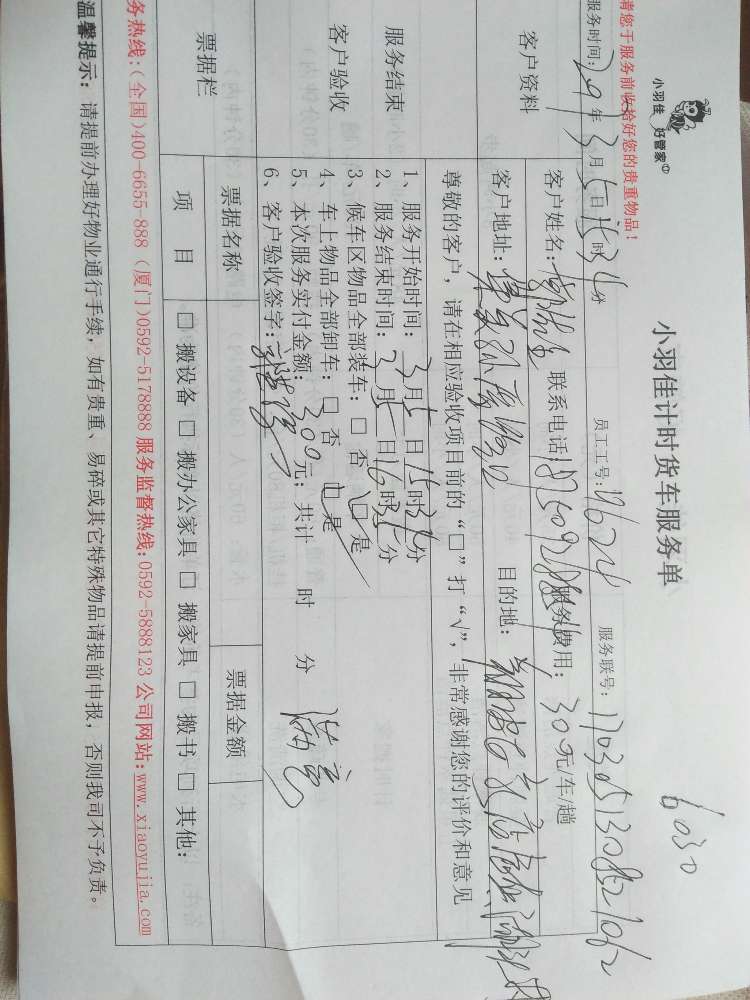 6030
小羽佳 好管家
小羽佳计时货车服务单
请您于服务前收拾好您的贵重物品!
服务时间: 年3月5日15时34分 员工工号: 服务联号:
客户资料
客户姓名: 联系电话: 服务费用:300元/车/趟
客户地址: 目的地:
尊敬的客户,请在相应验收项目前的“□”打“√”,非常感谢您的评价和意见
服务结束
客户验收
1、服务开始时间:3月5日15时 分
2、服务结束时间:3月5日16时 分
3、候车区物品全部装车:□否 □是
4、车上物品全部卸车:□否 □是
5、本次服务实付金额:300元;共计 时 分 满意
6、客户验收签字:
票据栏
票据名称 票据金额
项 目 □ 搬设备 □ 搬办公家具 □ 搬家具 □ 搬书 □ 其他:
务热线:(全国)400-6655-888 (厦门)0592-5178888 服务监督热线:0592-5888123 公司网站:www.xiaoyujia.com
温馨提示: 请提前办理好物业通行手续,如有贵重、易碎或其它特殊物品请提前申报,否则我司不予负责。